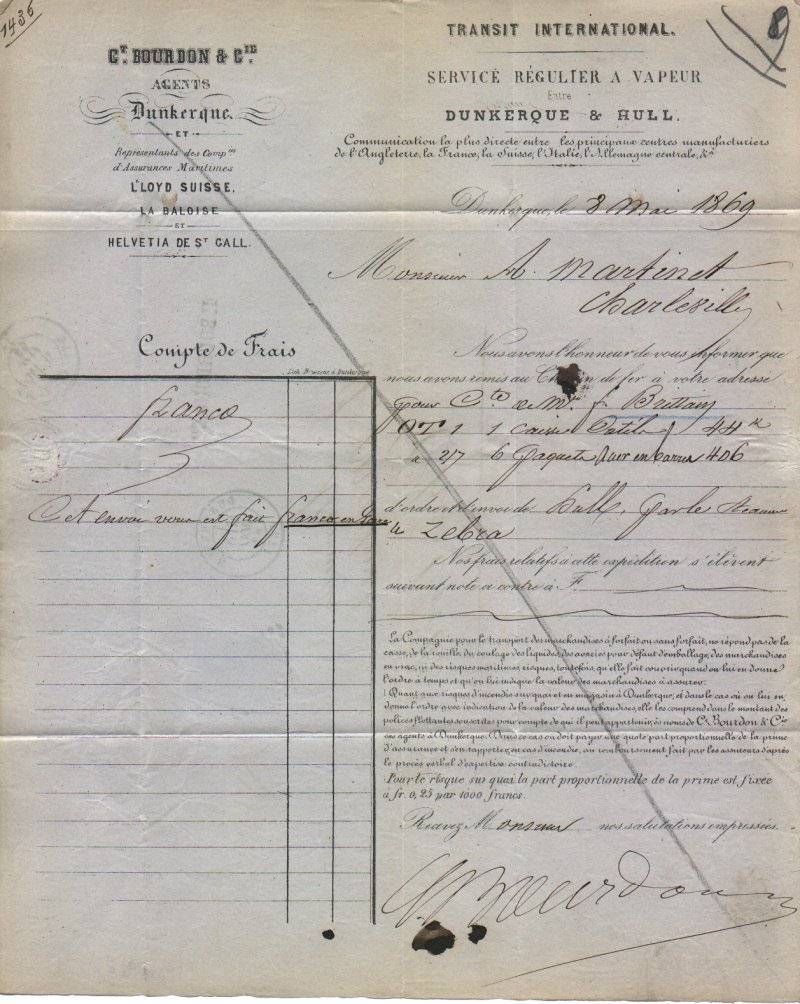 1436
8
Ct. BOURDON & CIE.
AGENTS
Dunkerque.
ET
Représentants des Comp.nies
d'Assurances Maritimes
LLOYD SUISSE,
LA BALOISE
ET
HELVETIA DE ST GALL.
TRANSIT INTERNATIONAL.
SERVICE RÉGULIER A VAPEUR
Entre
DUNKERQUE & HULL.
Communication la plus directe entre les principaux centres manufacturiers
de l'Angleterre, la France, la Suisse, l'Italie, l'Allemagne centrale, &a
Dunkerque, le 8 Mai 1869
Monsieur A. Martinet
Charleville
Compte de Frais
franco
Cet envoi vous est fait franco en gare
Nous avons l'honneur de vous informer que
nous avons remis au Chemin de fer à votre adresse
pour Cte de Mr. J. Brittain
OT 1 1 caisse Outils 44 k
a 2/7 6 paquets acier en barres 406
d'ordre et d'envoi de Hull, par le steamer
le Zebra
Nos frais relatifs à cette expédition s'élèvent
suivant note ci contre à F.
La Compagnie pour le transport des marchandises à forfait ou sans forfait, ne répond pas de la
casse, de la rouille, du coulage des liquides, des avaries pour défaut d'emballage, des marchandises
en vrac, ni des risques maritimes risques, toutefois, qu'elle fait couvrir quand on lui en donne
l'ordre à temps et qu'on lui indique la valeur des marchandises à assurer.
Quant aux risques d'incendie sur quai et en magasin à Dunkerque, et dans le cas où on lui en
donne l'ordre avec indication de la valeur des marchandises, elle les comprend dans le montant des
polices flottantes souscrites pour compte de qui il peut appartenir, ès noms de Ct. Bourdon & Cie
ses agents à Dunkerque. Dans ce cas on doit payer une quote part proportionnelle de la prime
d'assurance et s'en rapporter, en cas d'incendie, au remboursement fait par les assureurs d'après
le procès verbal d'expertise contradictoire.
Pour le risque sur quai la part proportionnelle de la prime est fixée
à fr. 0,25 par 1000 francs.
Recevez Monsieur nos salutations empressées.
Ct Bourdon